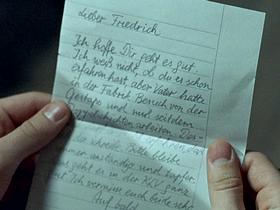 Lieber Friedrich
Ich hoffe Dir geht es gut.
Ich weiß nicht, ob du es schon
erfahren hast aber Vater hatte
in der Fabrik Besuch von der
Gestapo und muß seitdem
arbeiten.
schreibe. Bitte bleibe
anständig und tapfer
geht es in der KLV ganz
Ich vermisse euch beide sehr
Auf bald